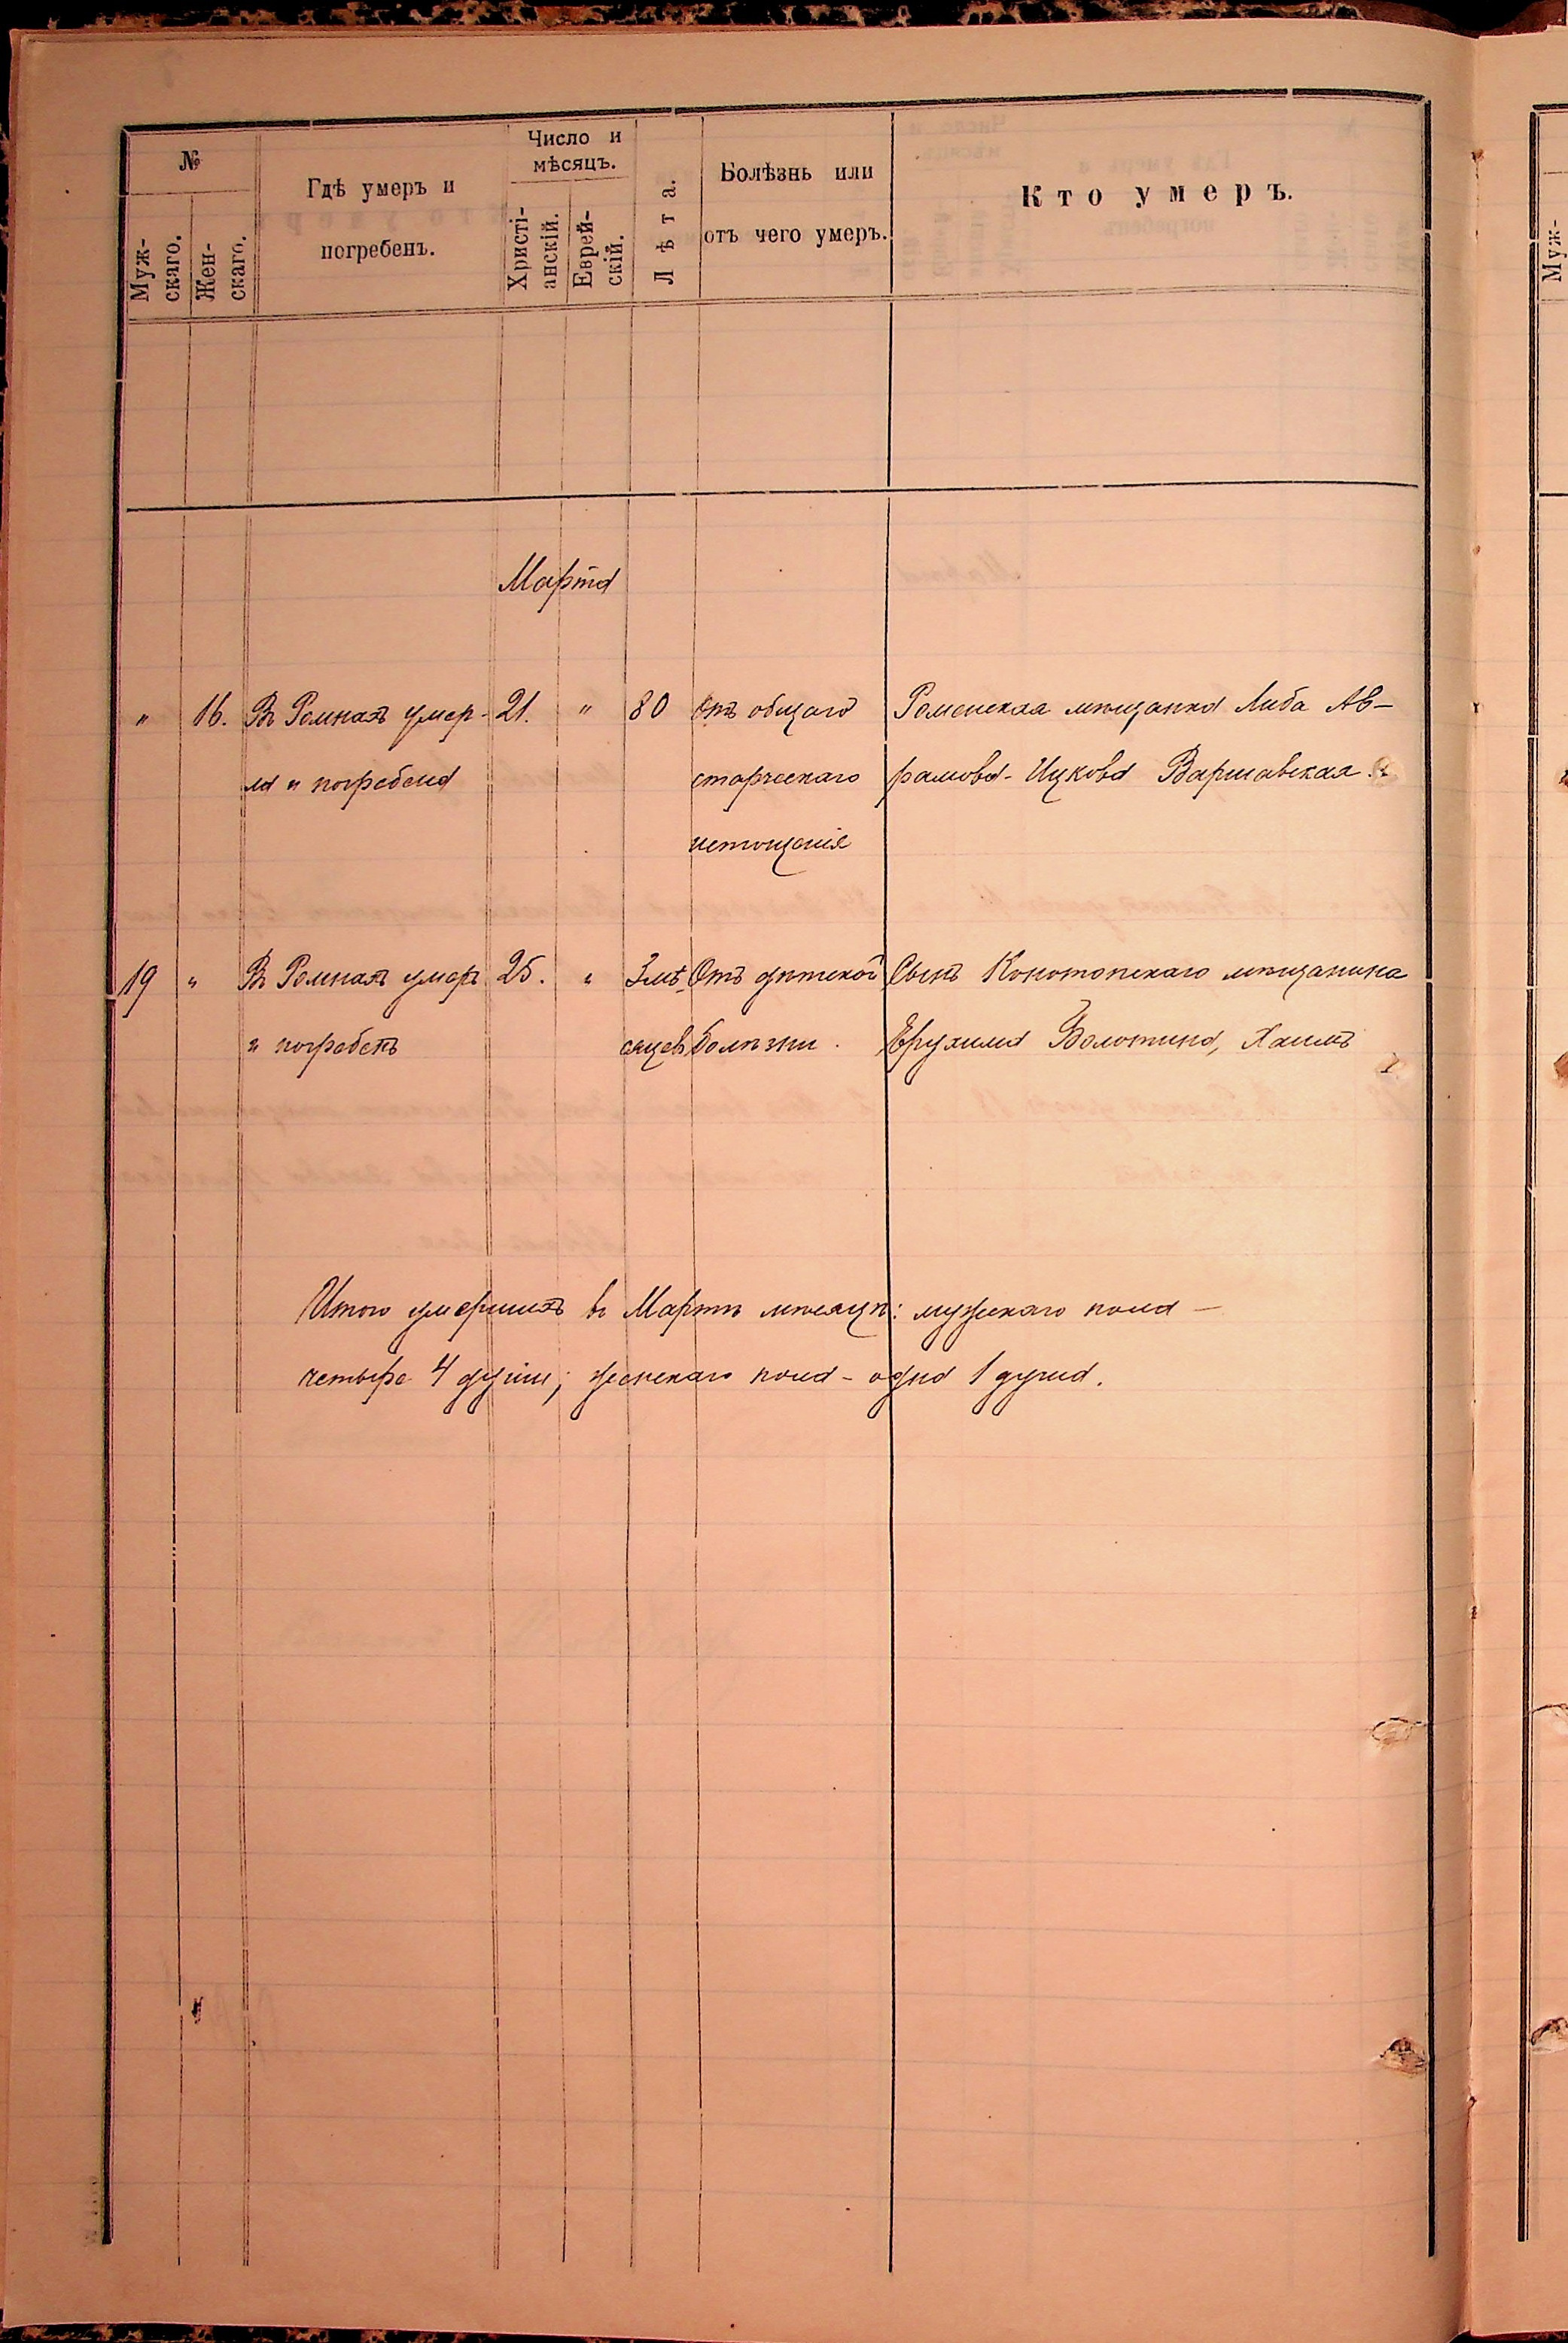 №
Муж-
скаго.
Жен-
скаго.
Гдѣ умеръ и
погребенъ.
Число и
мѣсяцъ.
Христі-
анскій.
Еврей-
скій.
Лѣта.
Болѣзнь или
отъ чего умеръ.
Кто умеръ.
Марта
" 16. Въ Ромнахъ умер- 21. " 80 Отъ общаго Роменская мѣщанка Либа Ав-
ла и погребена старческаго рамова-Ицкова Варшавская.
истощенія
19 " Въ Ромнахъ умеръ 25. " 3 мѣ- Отъ дѣтской Сынъ Конотопскаго мѣщанина
и погребенъ сяцев болѣзни. Ерухима Болотина, Хаимъ
Итого умершихъ въ Мартѣ мѣсяцѣ: мужскаго пола —
четыре 4 души; женскаго пола - одна 1 душа.
Муж-